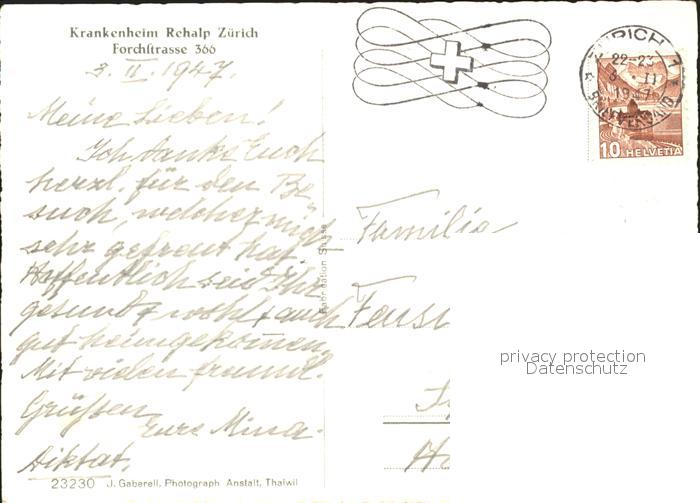 Krankenheim Rehalp Zürich
Forchstrasse 366
3. II. 1947.
Meine Lieben!
Ich danke Euch
herzl. für den Be-
such, welcher mich
sehr gefreut hat.
Hoffentlich seid Ihr
gesund & wohl & auch
gut heimgekommen.
Mit vielen freundl.
Grüssen
Eure Mina.
Diktat.
23230 J. Gaberell, Photograph. Anstalt, Thalwil
Fabrication Suisse
ZÜRICH 1
22-23
3. II
1947
BRIEFVERSAND
10 HELVETIA
Familie
privacy protection
Datenschutz